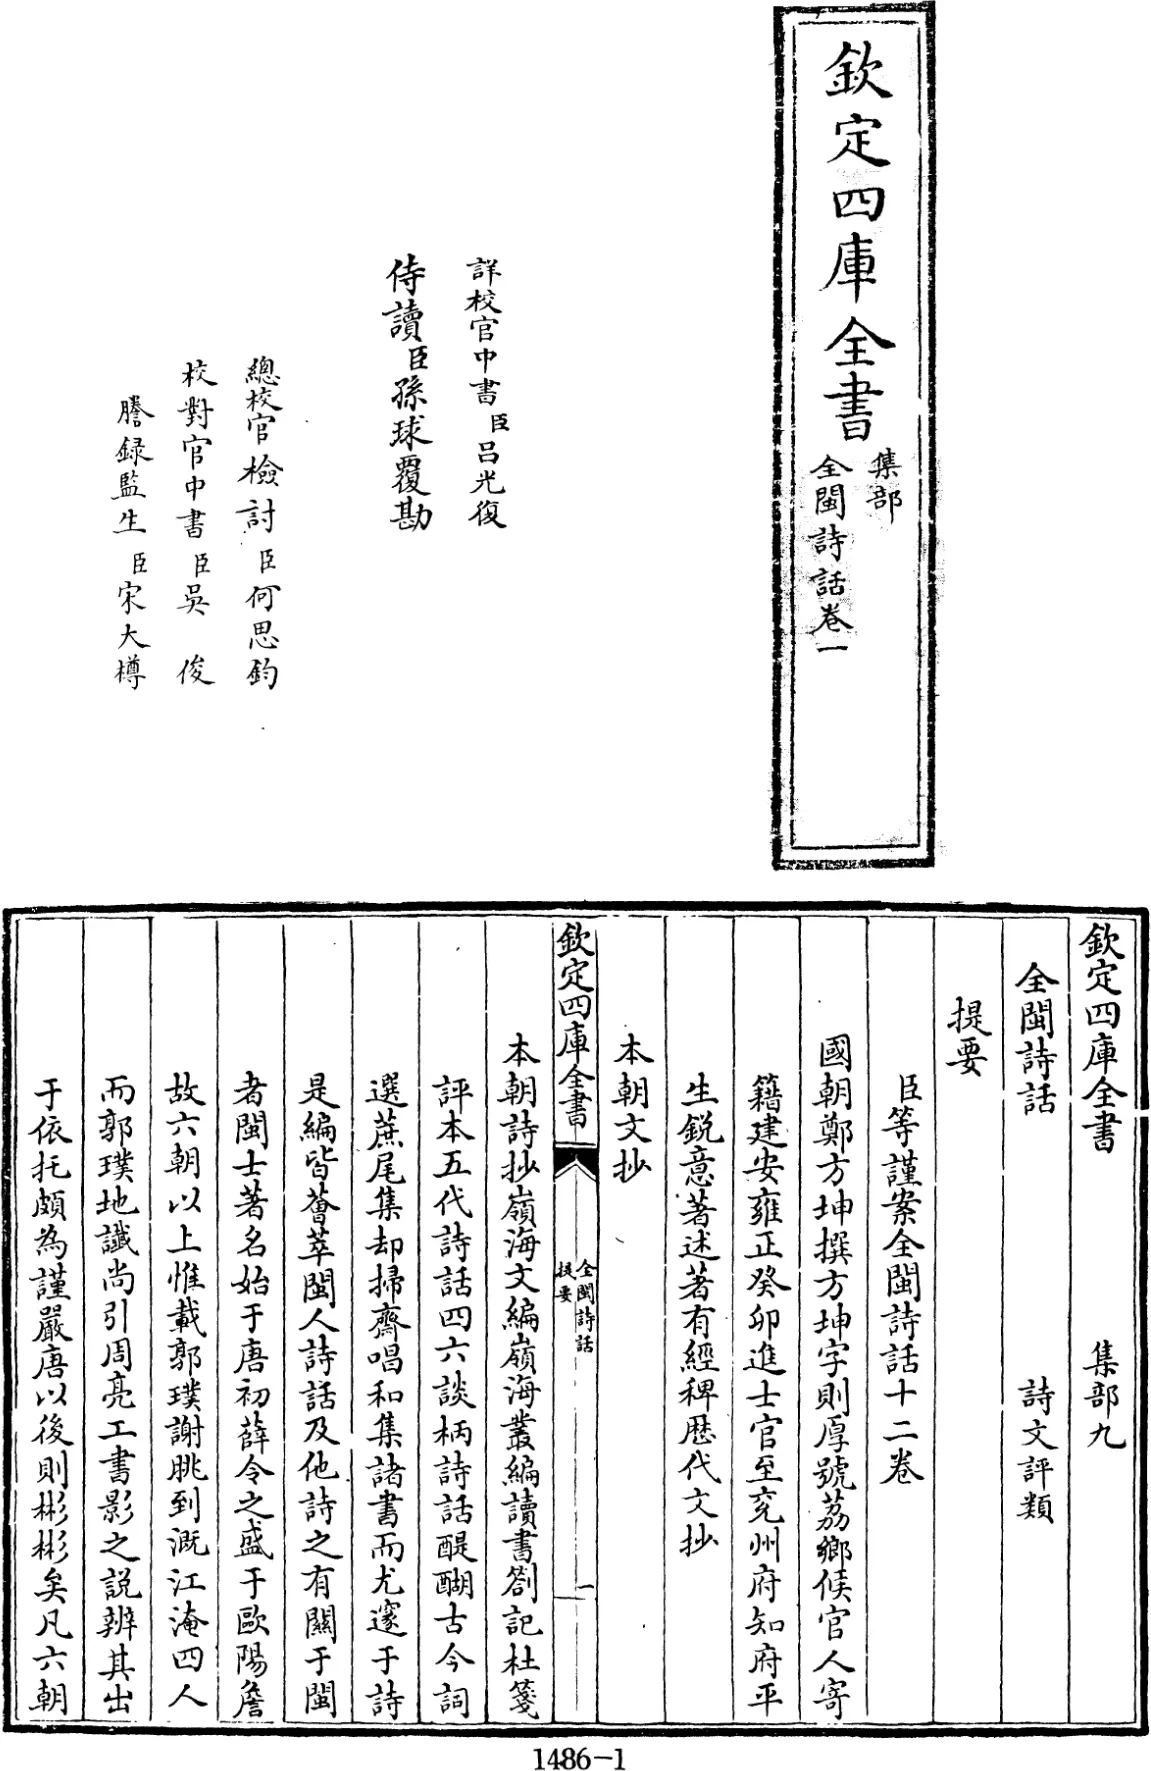 欽定四庫全書
集部
全閩詩話卷一
詳校官中書臣呂光復
侍讀臣孫球覆勘
總校官檢討臣何思鈞
校對官中書臣吳俊
謄録監生臣宋大樽
欽定四庫全書 集部九
全閩詩話 詩文評類
提要
臣等謹案全閩詩話十二卷
國朝鄭方坤撰方坤字則厚號荔鄉候官人寄
籍建安雍正癸卯進士官至兖州府知府平
生鋭意著述著有經稗歴代文抄
本朝文抄
欽定四庫全書
全閩詩話
提要
一
本朝詩抄嶺海文編嶺海叢編讀書劄記杜箋
評本五代詩話四六談柄詩話醍醐古今詞
選蔗尾集却掃齋唱和集諸書而尤邃于詩
是編皆薈萃閩人詩話及他詩之有關于閩
者閩士著名始于唐初薛令之盛于歐陽詹
故六朝以上惟載郭璞謝朓到溉江淹四人
而郭璞地讖尚引周亮工書影之説辨其出
于依托頗為謹嚴唐以後則彬彬矣凡六朝
1486-1